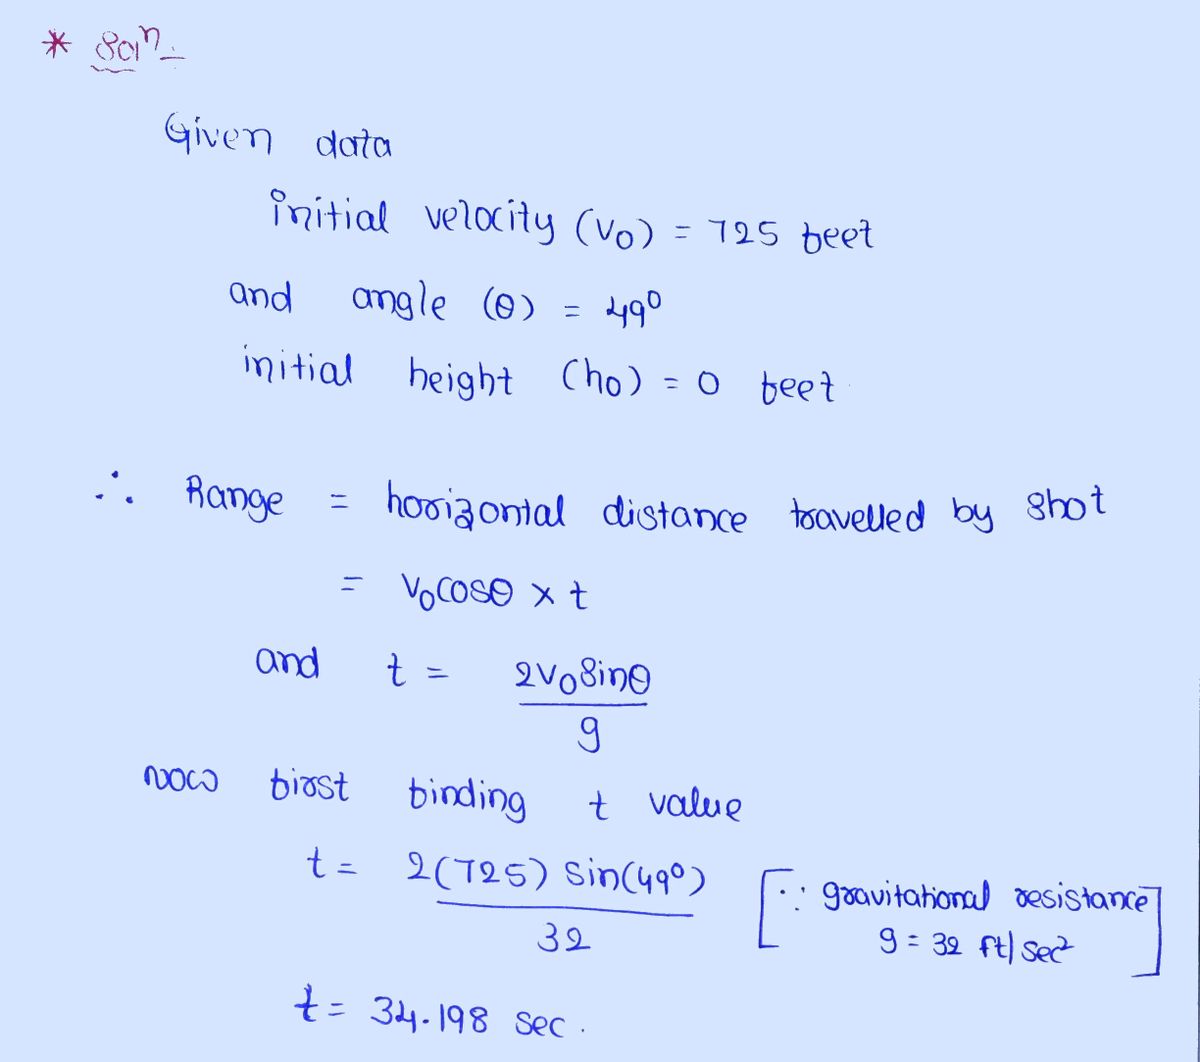 * Solⁿ :-
Given data
initial velocity (v₀) = 725 feet
and angle (θ) = 49°
initial height (h₀) = 0 feet
∴ Range = horizontal distance travelled by shot
= v₀cosθ × t
and t = 2v₀sinθ / g
now first finding t value
t = 2(725) sin(49°) / 32 [∵ gravitational resistance g = 32 ft/sec²]
t = 34.198 sec.